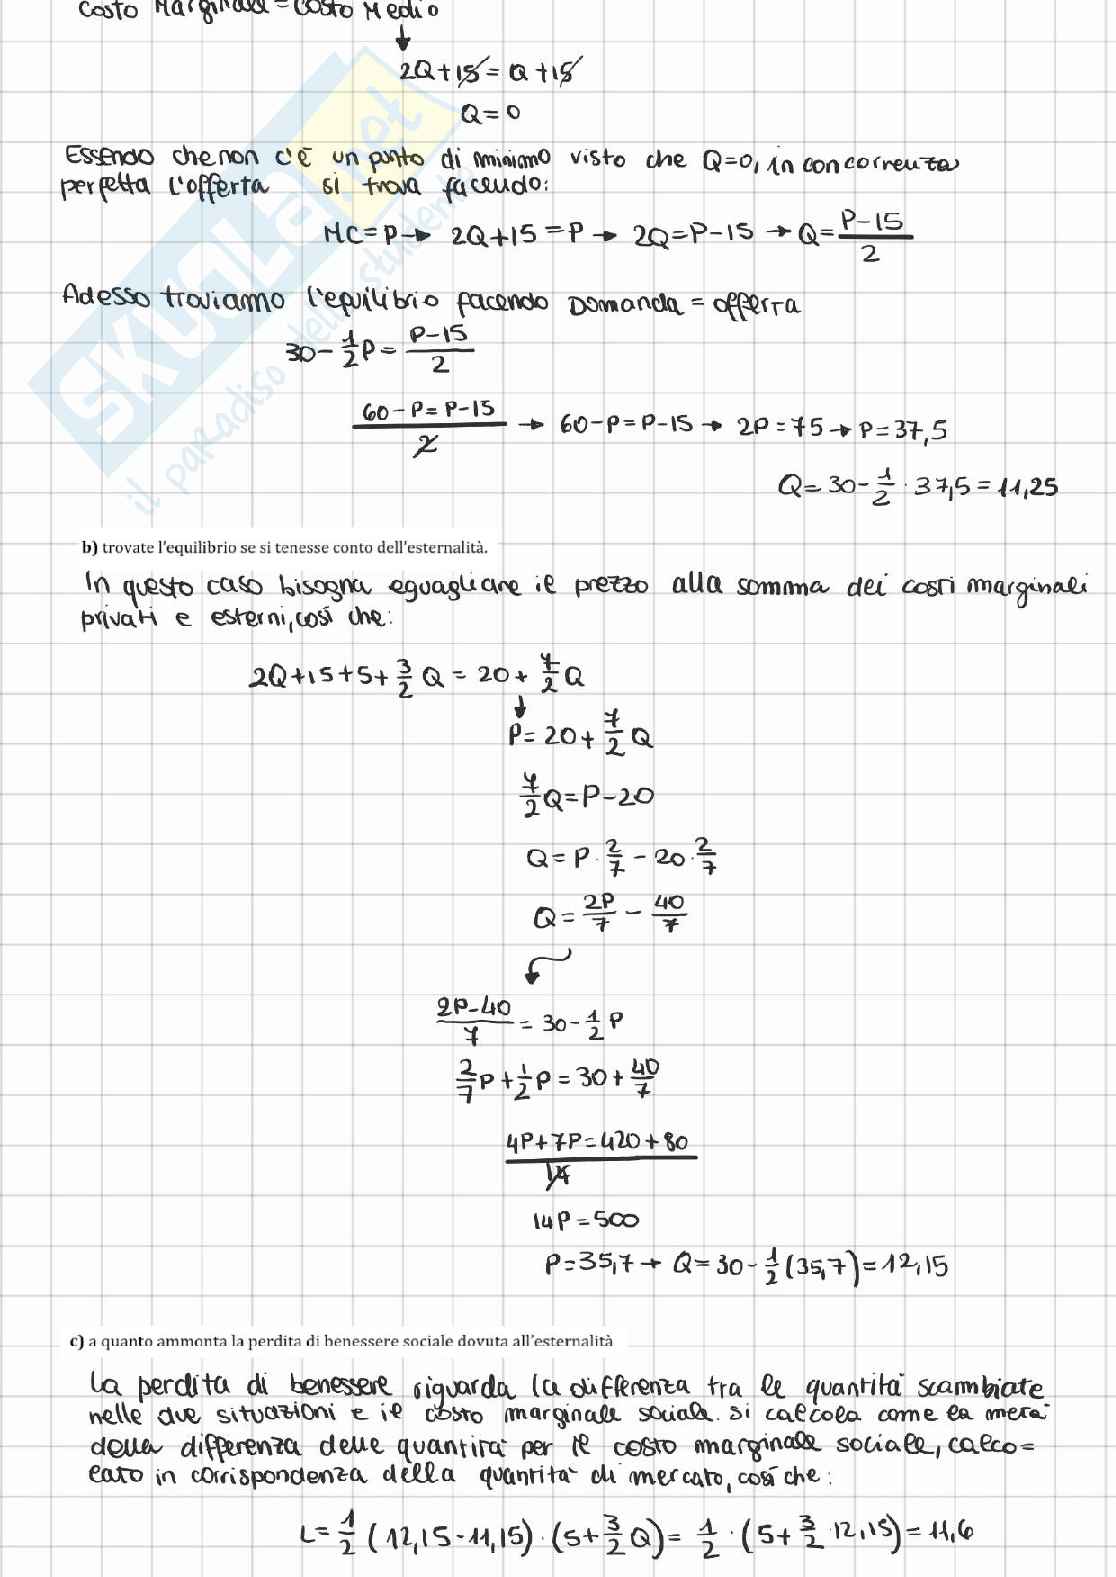 Costo Marginale = Costo Medio
↓
2Q+15 = Q+15
Q=0
Essendo che non c'è un punto di minimo visto che Q=0, in concorrenza
perfetta l'offerta si trova facendo:
MC=P → 2Q+15=P → 2Q=P-15 → Q=\frac{P-15}{2}
Adesso troviamo l'equilibrio facendo Domanda = offerta
30-\frac{1}{2}P=\frac{P-15}{2}
\frac{60-P=P-15}{2} → 60-P=P-15 → 2P=75 → P=37,5
Q=30-\frac{1}{2}·37,5=11,25
b) trovate l'equilibrio se si tenesse conto dell'esternalità.
In questo caso bisogna eguagliare il prezzo alla somma dei costi marginali
privati e esterni, così che:
2Q+15+5+\frac{3}{2}Q=20+\frac{7}{2}Q
↓
P=20+\frac{7}{2}Q
\frac{7}{2}Q=P-20
Q=P·\frac{2}{7}-20·\frac{2}{7}
Q=\frac{2P}{7}-\frac{40}{7}
\frac{2P-40}{7}=30-\frac{1}{2}P
\frac{2}{7}P+\frac{1}{2}P=30+\frac{40}{7}
\frac{4P+7P=420+80}{14}
14P=500
P=35,7 → Q=30-\frac{1}{2}(35,7)=12,15
c) a quanto ammonta la perdita di benessere sociale dovuta all'esternalità
La perdita di benessere riguarda la differenza tra le quantità scambiate
nelle due situazioni e il costo marginale sociale. si calcola come la metà
della differenza delle quantità per il costo marginale sociale, calco=
lato in corrispondenza della quantità di mercato, così che:
L=\frac{1}{2}(12,15-11,15)·(5+\frac{3}{2}Q)=\frac{1}{2}·(5+\frac{3}{2}·12,15)=11,6
SKUOLA.net
il paradiso dello studente